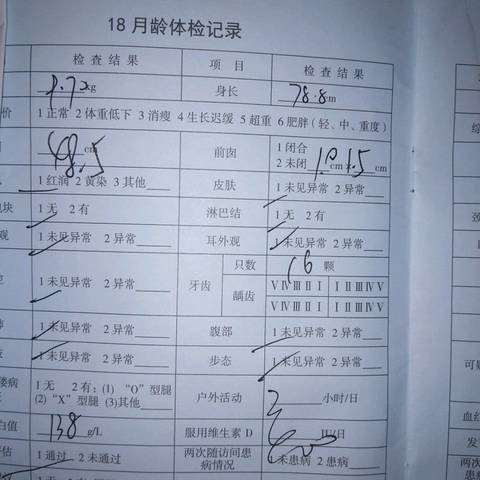 18 月龄体检记录
检 查 结 果 项 目 检 查 结 果
kg 身长 78.8cm
价 1 正常 2 体重低下 3 消瘦 4 生长迟缓 5 超重 6 肥胖（轻、中、重度）
48.5cm 前囟 1 闭合
2 未闭 1.0cm 1.5cm
1 红润 2 黄染 3 其他 皮肤 1 未见异常 2 异常
包块 1 无 2 有 淋巴结 1 无 2 有
观 1 未见异常 2 异常 耳外观 1 未见异常 2 异常
1 未见异常 2 异常 牙齿 只数 16 颗
龋齿 V Ⅳ Ⅲ Ⅱ Ⅰ Ⅰ Ⅱ Ⅲ Ⅳ V
V Ⅳ Ⅲ Ⅱ Ⅰ Ⅰ Ⅱ Ⅲ Ⅳ V
肺 1 未见异常 2 异常 腹部 1 未见异常 2 异常
1 未见异常 2 异常 步态 1 未见异常 2 异常
偻病 1 无 2 有：(1) “O”型腿
(2)“X”型腿 (3)其他 户外活动 2 小时/日
白值 138 g/L 服用维生素 D IU/日
评估 1 通过 2 未通过 两次随访间患
病情况 1 未患病 2 患病
可疑
血红
发